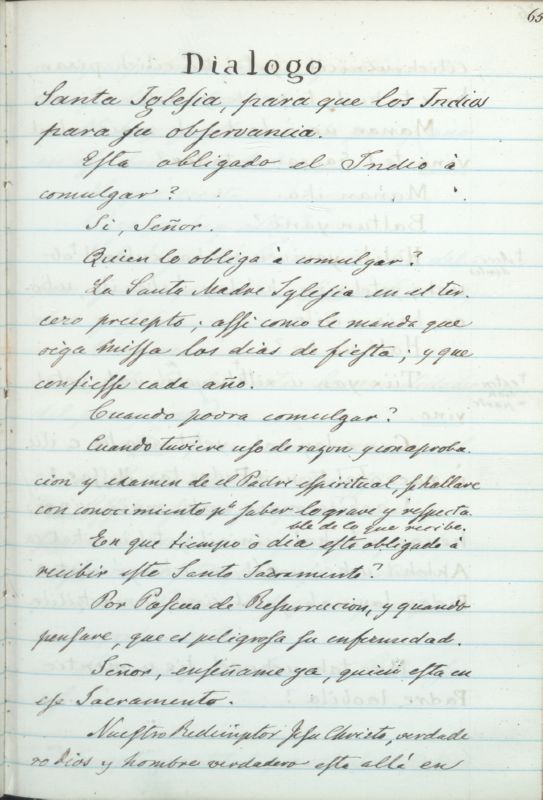 65
Dialogo
Santa Iglesia, para que los Indios
para su observancia.
Esta obligado el Indio à
comulgar?
Si, Señor.
Quien lo obliga à comulgar?
La Santa Madre Iglesia en el ter-
cero precepto; assi como le manda que
oiga missa los dias de fiesta; y que
confiesse cada año.
Cuando podra comulgar?
Cuando tuviere uso de razon y con aproba
cion y examen de el Padre espiritual, se hallare
con conocimiento pa saber lo grave y respecta
ble de lo que recibe.
En que tiempo ò dia està obligado à
recibir este Santo Sacramento?
Por Pascua de Resurreccion, y quando
pensare, que es peligrosa su enfermedad.
Señor, enseñame ya, quien esta en
esse Sacramento.
Nuestro Redemptor Jesu Christo, verdade
ro Dios y hombre verdadero esta allé en